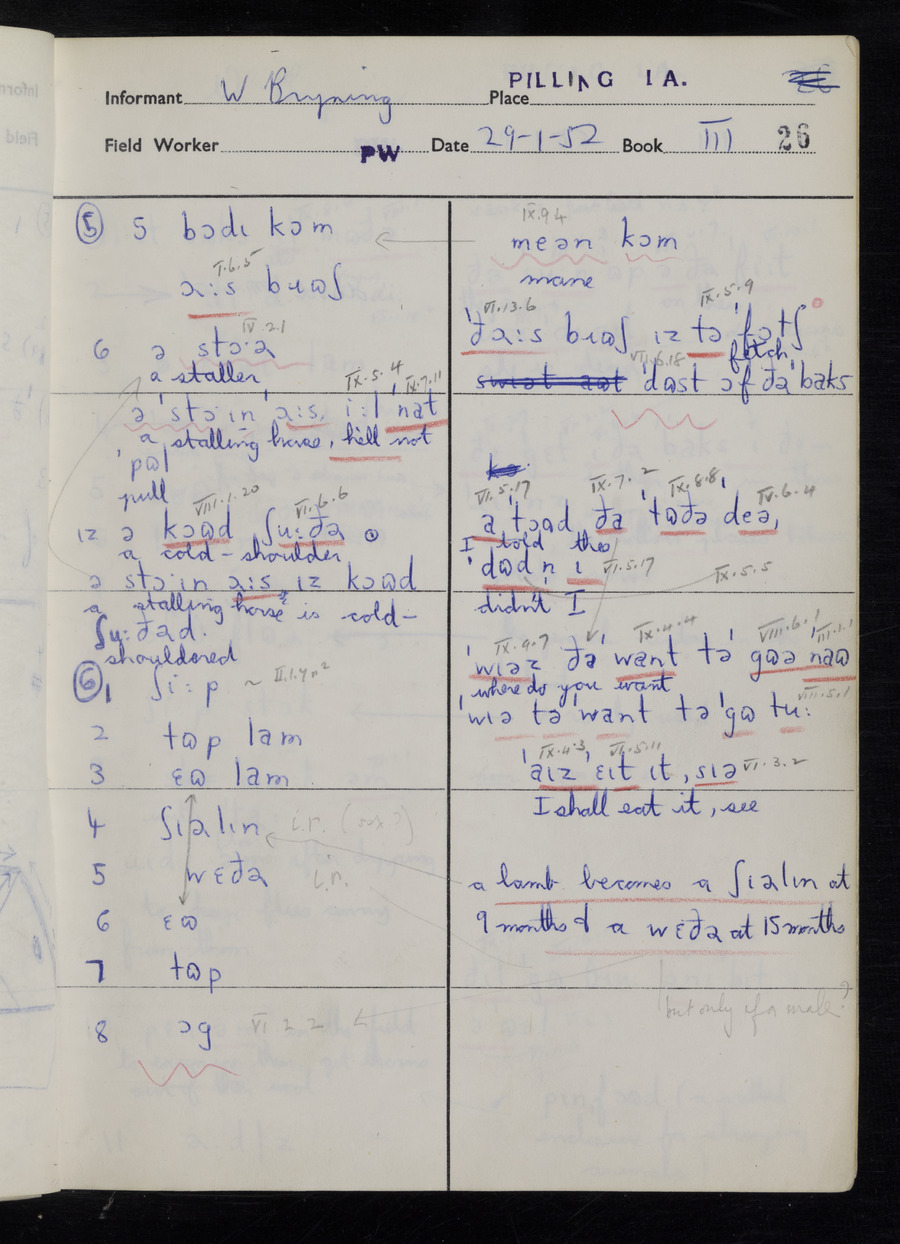 Informant W Bryning Place PILLING LA.
Field Worker PW Date 29-1-52 Book III 26
⑤ 5 bɔdɪ kɔm
I.6.5
ɔ:s bɹɷʃ
IV 2.1
6 ə stɔ·ə
a staller
IX.5.4 IX.7.11
ə ˈstɔˑɪn ˈɔ:s, i:l ˈnat
a stalling horse, he'll not
ˈpɷl
pull
VIII.1.20 VI.6.6
12 ə kɔɷd ʃu:ðə
a cold-shoulder
ə stɔˑɪn ɔ:s ɪz kɔɷd
a stalling horse is cold-
ʃu:ðəd.
shouldered
⑥ 1 ʃi:p ~ II.1.4 n²
2 tɷp lam
3 ɛɷ lam
4 ʃɪəlɪn i.r. (sex?)
5 wɛðə i.r.
6 ɛɷ
7 tɷp
8 ɔg VI 2 2
IX.9.4
meən kɔm
mane
VI.13.6 IX.5.9
ˈðɔ:s bɹɷʃ ɪz tə ˈfɔtʃ
fetch
VII.6.18
dɷst ɔf ðə ˈbaks
VII.5.17 IX.7.2 IX.8.8 IV.6.4
a ˈtɔɷd ðə ˈtɷðə deə,
I told the
ˈdɷdn ɪ VI.5.17 IX.5.5
didn't I
IX.9.7 IX.4.4 VIII.6.1 III.1.1
ˈwɪəz ðə ˈwant tə ˈgɷə naɷ
where do you want
VIII.5.1
ˈwɪə tə ˈwant tə ˈgɷ tu:
IX.4.3 VI.5.11
ˈaɪz ˈɛɪt ɪt, sɪə VI.3.2
I shall eat it, see
a lamb becomes a ʃɪəlɪn at
9 months & a wɛðə at 15 months
but only if a male?